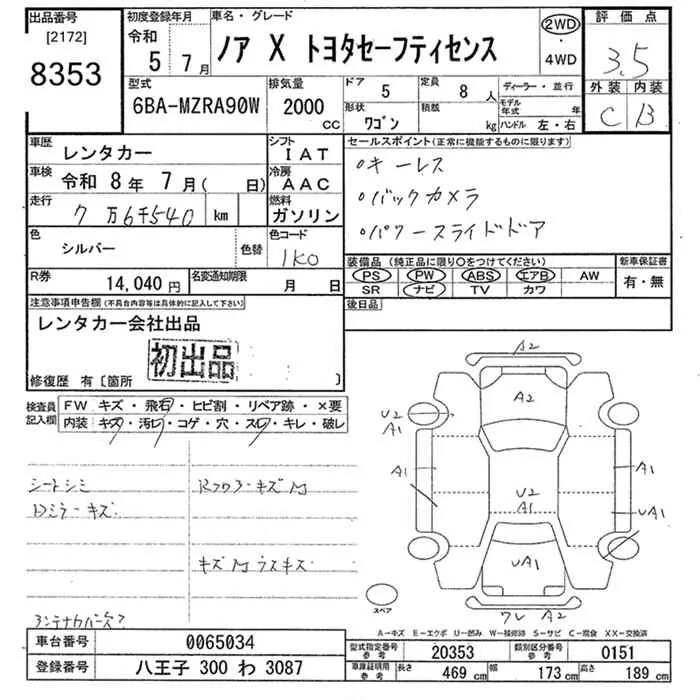 出品番号
[2172]
8353
初度登録年月
令和
5 7月
車名・グレード
ノア X トヨタセーフティセンス
2WD
・
4WD
評価点
3.5
外装 内装
C B
型式
6BA-MZRA90W
排気量
2000
cc
ドア
5
定員
8 人
形状
ワゴン
積載
kg
ディーラー・並行
モデル年式
年
ハンドル 左・右
車歴
レンタカー
シフト
IAT
車検 令和 8年 7月( 日)
冷房
AAC
走行
7万6千540 km
燃料
ガソリン
色
シルバー
色替
色コード
1K0
R券 14,040円
名変通知期限
月 日
セールスポイント(正常に機能するものに限ります)
○キーレス
○バックカメラ
○パワースライドドア
装備品(純正品に限り○をつけてください)
PS PW ABS エアB AW
SR ナビ TV カワ
新車保証書
有・無
後日品
注意事項申告欄(不具合内容等は具体的に記入して下さい)
レンタカー会社出品
初出品
修復歴 有〔箇所 〕
検査員
記入欄
FW キズ・飛石・ヒビ割・リペア跡・×要
内装 キズ・汚レ・コゲ・穴・スレ・キレ・破レ
シートシミ
Dミラーキズ
RフロアーキズM
キズM ラスキズ
A2
A2
U2
A1
A1
A1
U2
A1
UA1
UA1
ワレ A2
スペア
A-キズ E-エクボ U-凹み W-補修跡 S-サビ C-腐食 XX-交換済
車台番号 0065034
登録番号 八王子 300 わ 3087
型式指定番号
参考
20353
類別区分番号
参考
0151
車庫証明用
参考
長さ 469 cm 幅 173 cm 高さ 189 cm